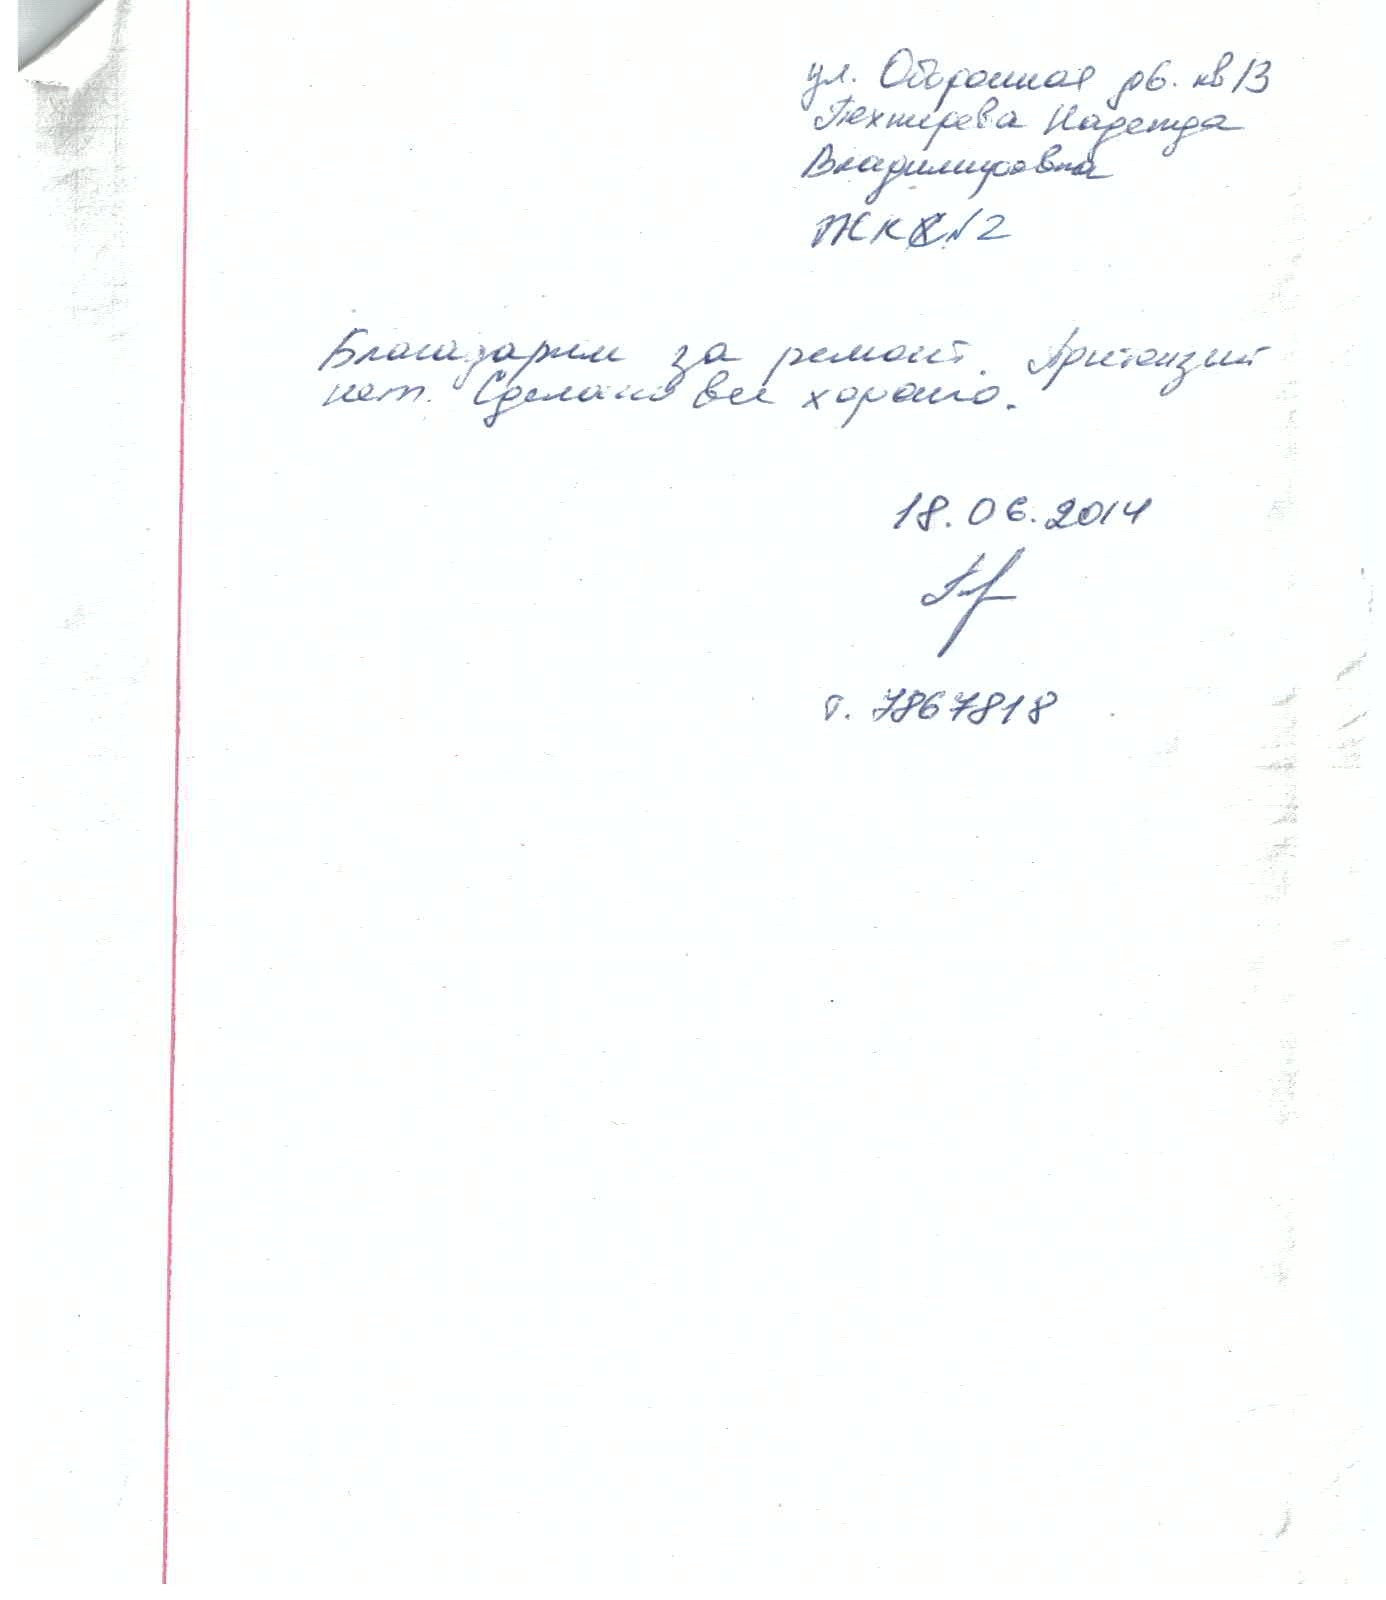 ул. Оборонная д6. кв 13
Надежда
Владимировна
ЖКС №2
Благодарим за ремонт. Притензий
нет. Сделано все хорошо.
18.06.2014
т. 7867818